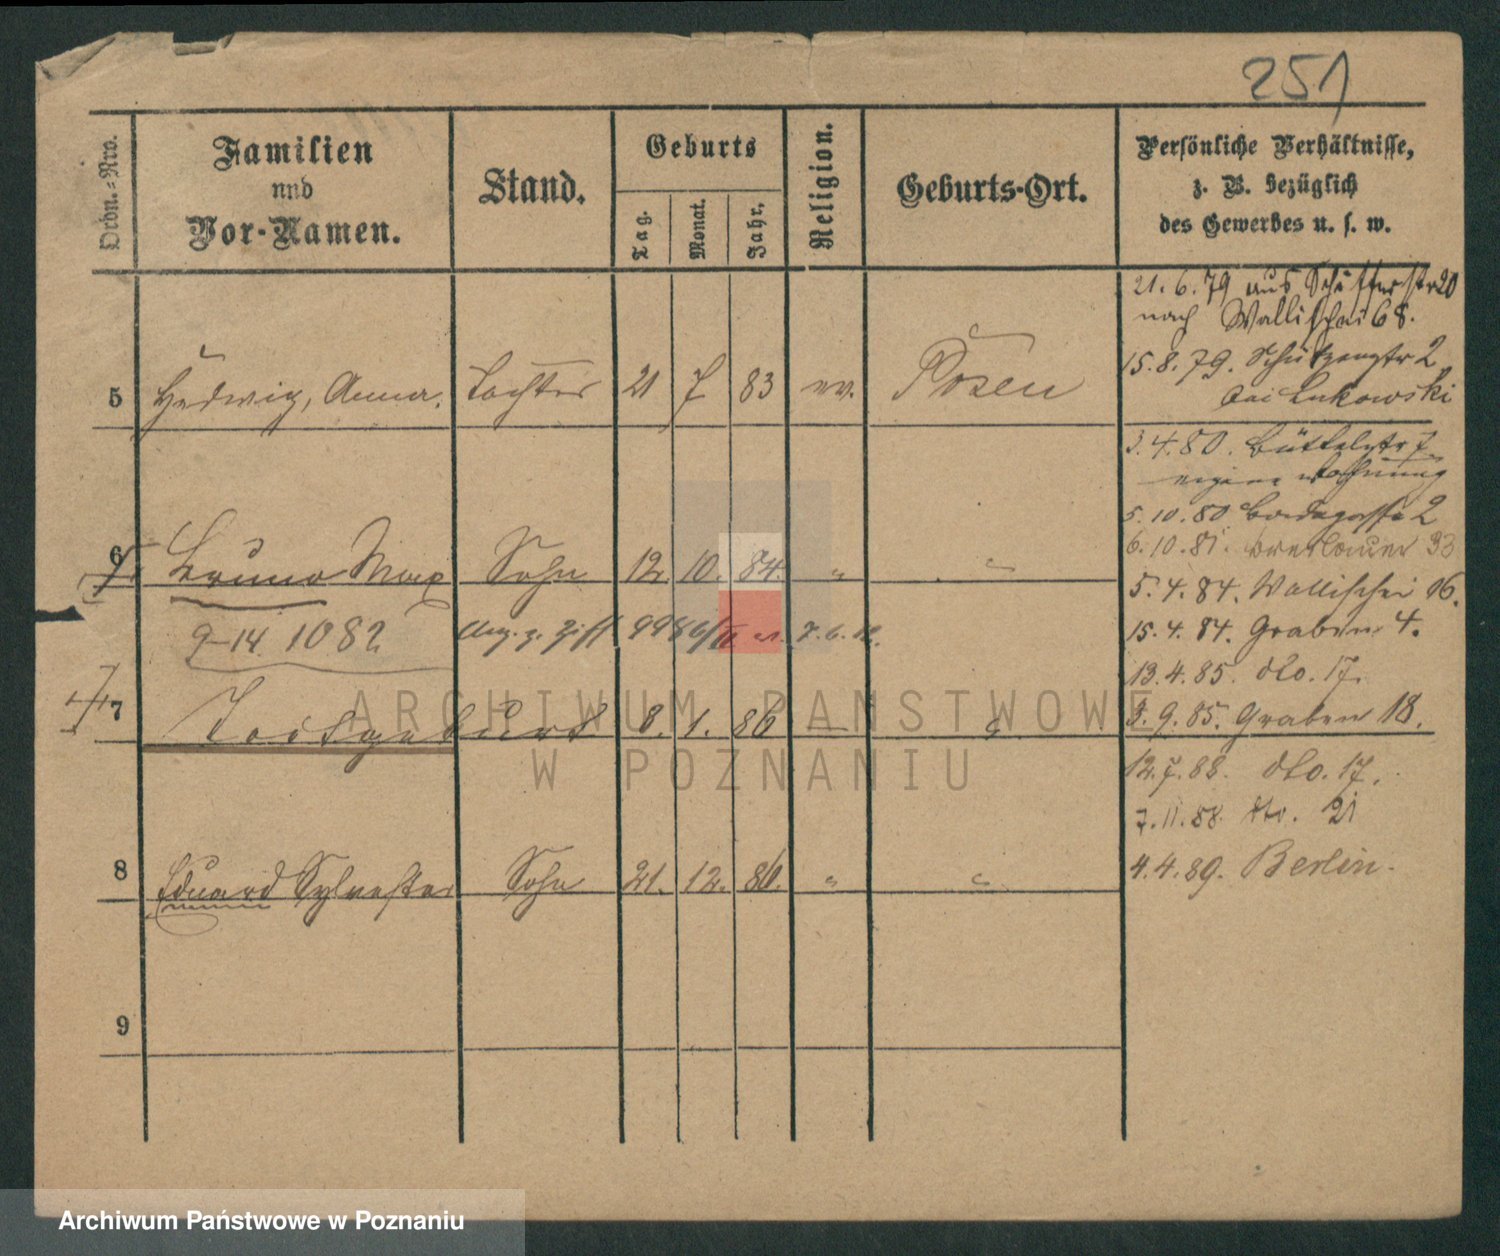 251
Ordn.=Nro.
Familien
und
Vor-Namen.
Stand.
Geburts
Tag.
Monat.
Jahr.
Religion.
Geburts-Ort.
Persönliche Verhältnisse,
z. B. bezüglich
des Gewerbes u. s. w.
5 Hedwig, Anna. Tochter 21 7 83 ev. Posen
6 Bruno Max Sohn 12. 10. 84. " "
9-14. 1082
7 Todtgeburt 8. 1. 86 — "
8 Eduard Sylvester Sohn 21. 12. 86. " "
9
21. 6. 79 aus Schifferstr 20
nach Wallischei 68.
15. 8. 79. Schützenstr 2
bei Lukowski
3. 4. 80. Büttelstr 7
eigene Wohnung
5. 10. 80. 2
6. 10. 81. Breslauer 33
5. 4. 84. Wallischei 16.
15. 4. 84. Graben 4.
13. 4. 85. dto. 17.
3. 9. 85. Graben 18.
12. 7. 88. dto. 17.
7. 11. 88. 21
4. 4. 89. Berlin.
ARCHIWUM PAŃSTWOWE
W POZNANIU
Archiwum Państwowe w Poznaniu